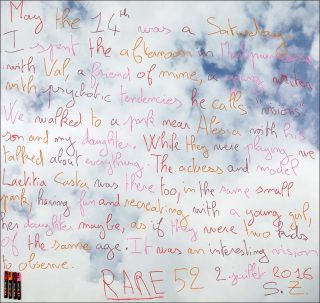 May the 14th was a Saturday.
I spent the afternoon in
with Val, a friend of mine, a young writer
with psychotic tendencies he calls "visions".
We walked to a park near Alesia with his
son and my daughter. While they were playing, we
talked about everything. The actress and model
Laetitia Casta was there too, in the same small
park, having fun and recreating with a young girl,
her daughter maybe, as if they were two kids
of the same age. It was an interesting vision
to observe.
RARE 52 2 juillet 2016
S. Z.